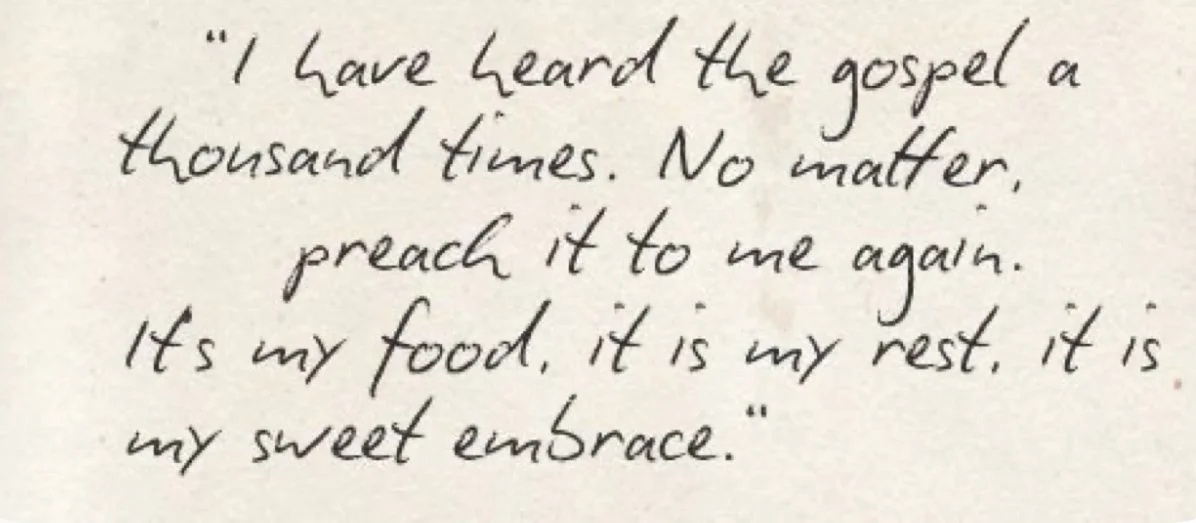 "I have heard the gospel a
thousand times. No matter,
preach it to me again.
It's my food, it is my rest, it is
my sweet embrace."